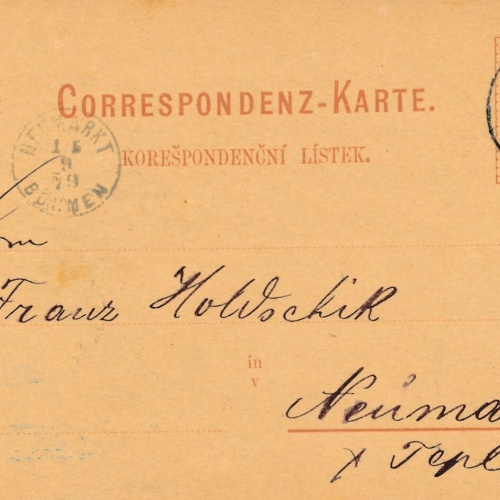 CORRESPONDENZ-KARTE.
KOREŠPONDENČNÍ LÍSTEK.
NEUMARKT
9
79
BÖHMEN
Franz Holdschik
in
v
Neuma
Tepl